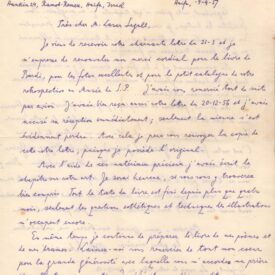 Hankin 24, Ramat-Remez, Haifa, Israel Haifa, 9-4-57
Très cher M. Lasar Segall.
Je viens de recevoir votre charmante lettre du 21-3 et je
m'empresse de renouveler mon merci cordial pour le livre de
Bardi, pour les fotos excellentes et pour le petit catalogue de votre
rétrospective au Musée de S.P. J'avais
par avion. J'avais bien reçu aussi votre lettre du 20-12-56 et j'avais
accusé sa réception immédiatement; seulement la mienne s'est
évidemment perdue. Avec cela je peux vous renvoyer la copie de
cette votre lettre; puisque je possède l'original.
Avec l'aide de ces matériaux précieux j'avais écrit le
chapitre sur votre art. Je serai heureux, si vous vous y trouverez
bien compris. Tout le texte du livre est fini depuis plus que quatre
mois, seulement les questions esthétiques et technique des illustrations
m'occupent encore.
En même temps je continue de préparer le livre de ses poèmes et
de ses dessins. Laissez-moi vous remercier de tout mon coeur
pour la grande générosité avec laquelle vous m'accordez au prière